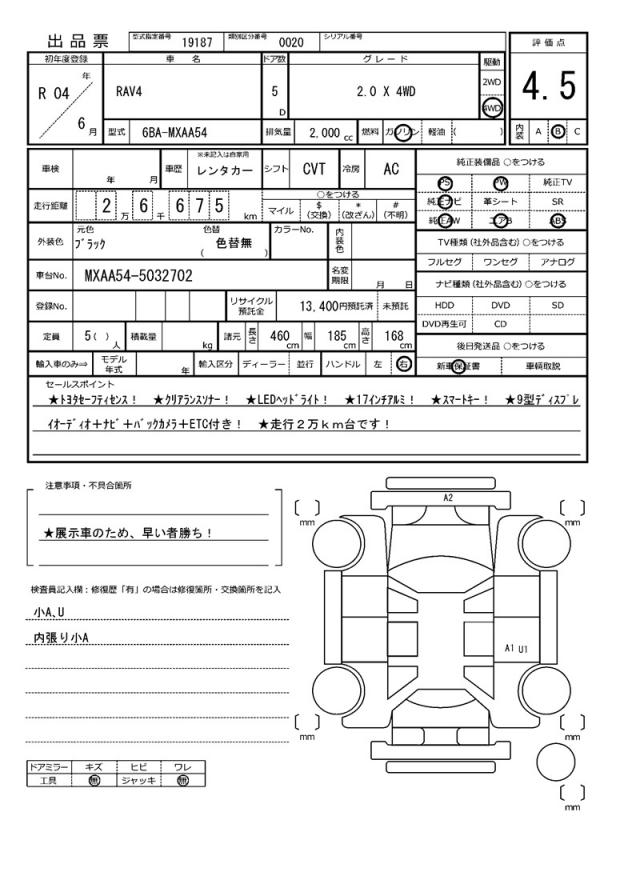 出品票 型式指定番号 19187 類別区分番号 0020 シリアル番号
評価点
4.5
初年度登録 車名 ドア数 グレード 駆動
R 04 年 6 月
RAV4 5 D 2.0 X 4WD
2WD
4WD
型式 6BA-MXAA54 排気量 2,000 cc 燃料 ガソリン 軽油 ( )
内装 A B C
車検 年 月 車歴 ※未記入は自家用 レンタカー シフト CVT 冷房 AC
走行距離 2 万 6 千 6 7 5 km
○をつける
マイル $ (交換) * (改ざん) # (不明)
外装色 元色 ブラック 色替 色替無 ( ) カラーNo. 内装色
車台No. MXAA54-5032702 名変期限 月 日
登録No. リサイクル預託金 13,400円預託済 未預託
定員 5( ) 人 積載量 kg 諸元 長さ 460 cm 幅 185 cm 高さ 168 cm
輸入車のみ⇨ モデル年式 年 輸入区分 ディーラー 並行 ハンドル 左 右
純正装備品 ○をつける
PS PW 純正TV
純正ナビ 革シート SR
純正AW エアB ABS
TV種類 (社外品含む) ○をつける
フルセグ ワンセグ アナログ
ナビ種類 (社外品含む) ○をつける
HDD DVD SD
DVD再生可 CD
後日発送品 ○をつける
新車保証書 車輌取説
セールスポイント
★トヨタセーフティセンス! ★クリアランスソナー! ★LEDヘッドライト! ★17インチアルミ! ★スマートキー! ★9型ディスプレ
イオーディオ+ナビ+バックカメラ+ETC付き! ★走行2万km台です!
注意事項・不具合箇所
★展示車のため、早い者勝ち!
検査員記入欄:修復歴「有」の場合は修復箇所・交換箇所を記入
小A、U
内張り小A
ドアミラー キズ ヒビ ワレ
工具 無 ジャッキ 無
A2
mm
mm
A1 U1
mm
mm
mm